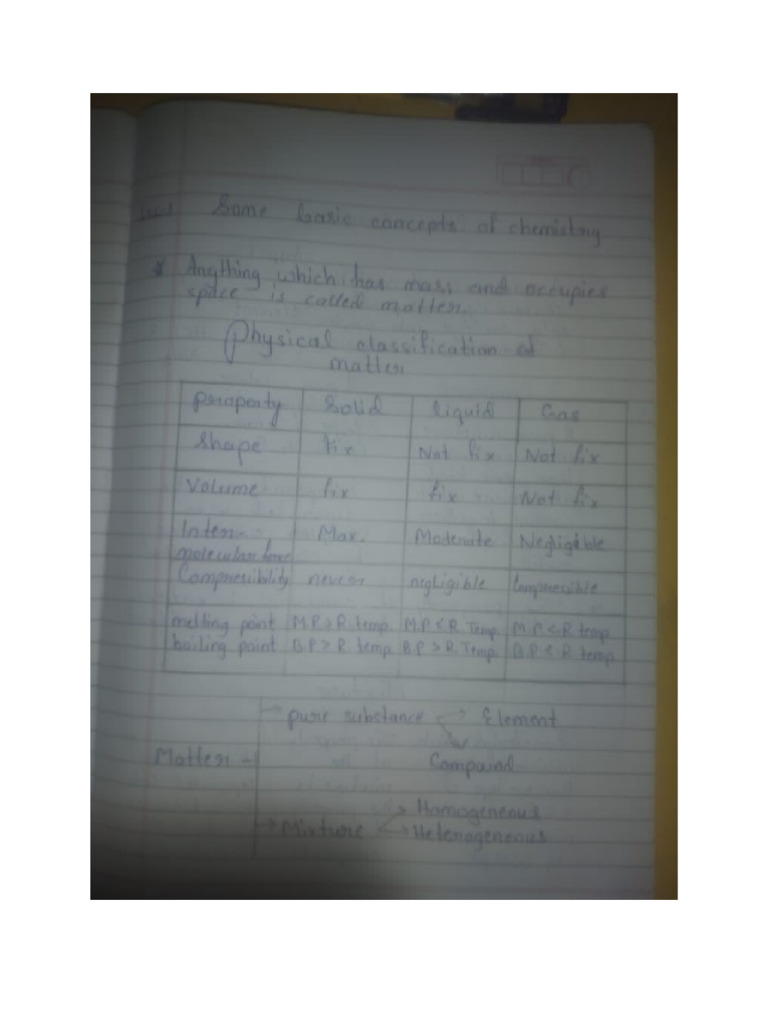 Some basic concepts of chemistry
* Anything which has mass and occupies
space is called matter.
Physical classification of
matter
Property Solid liquid Gas
Shape fix Not fix Not fix
Volume fix fix Not fix
Inter- Max. Moderate Negligible
molecular force
Compressibility never negligible Compressible
melting point M.P > R. temp. M.P < R. Temp. M.P. < R temp.
boiling point B.P > R. temp. B.P > R. Temp. B.P < R temp.
→ pure substance → Element
Matter → Compound
→ Homogeneous
→ Mixture → Heterogeneous